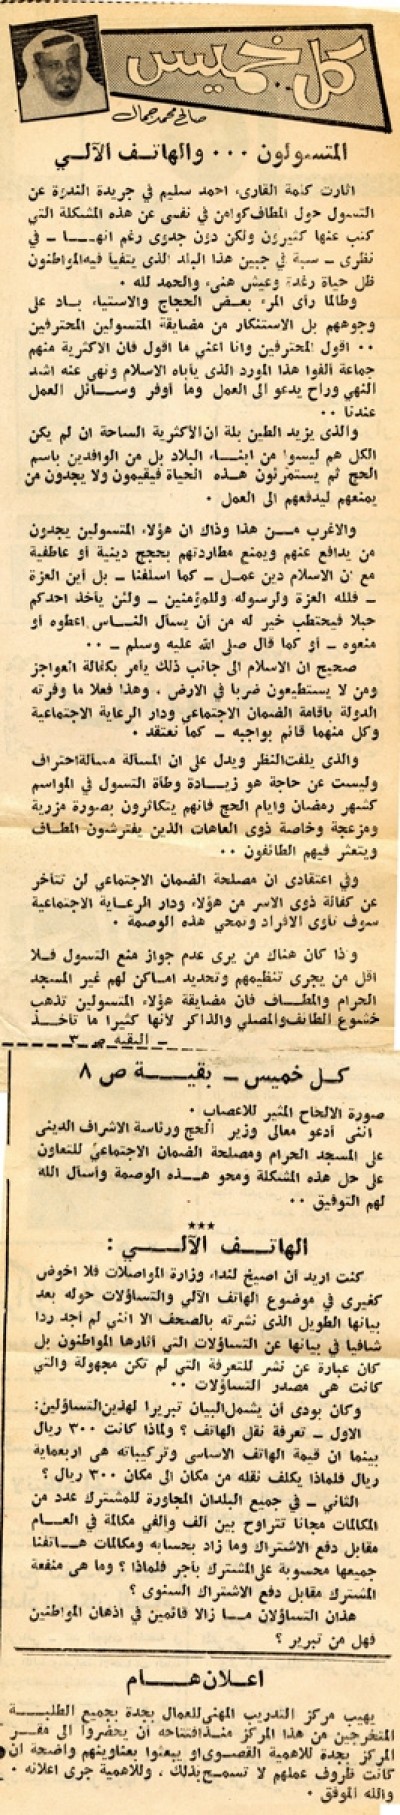 كل .. خميس
صالح محمد جمال
المتسولون ٠٠٠ والهاتف الآلي
اثارت كلمة القارىء احمد سليم في جريدة الندوة عن
التسول حول المطاف كوامن في نفسى عن هذه المشكلة التي
كتب عنها كثيرون ولكن دون جدوى رغم انهـا ـ في
نظرى ـ سبة في جبين هذا البلد الذى يتفيأ فيه المواطنون
ظل حياة رغدة وعيش هنىء والحمد لله ٠
وطالما رأى المرء بعض الحجاج والاستياء باد على
وجوههم بل الاستنكار من مضايقة المتسولين المحترفين
٠٠ اقول المحترفين وانا اعنى ما اقول فان الاكثرية منهم
جماعة ألفوا هذا المورد الذى يأباه الاسلام ونهى عنه اشد
النهي وراح يدعو الى العمل وما أوفر وسـائل العمل
عندنا ٠٠
والذى يزيد الطين بلة أن الأكثرية الساحقة ان لم يكن
الكل هم ليسوا من ابنـاء البلاد بل من الوافدين باسم
الحج ثم يستمرئون هـذه الحياة فيقيمون ولا يجدون من
يمنعهم ليدفعهم الى العمل ٠
والاغرب مـن هذا وذاك ان هؤلاء المتسولين يجدون
من يدافع عنهم ويمنع مطاردتهم بحجج دينية أو عاطفية
مع ن الاسلام دين عمـل ـ كما اسلفنا ـ بل أين العزة
ـ فلله العزة ولرسوله وللمؤمنين ـ ولئن يأخذ احدكم
حبلا فيحتطب خير له من أن يسأل النـاس اعطوه أو
منعوه ـ أو كما قال صلى الله عليه وسلم ـ ٠٠
صحيح ان الاسلام الى جانب ذلك يأمر بكفالة العواجز
ومن لا يستطيعون ضربا في الارض ، وهذا فعلا ما وفرته
الدولة باقامة الضمان الاجتماعي ودار الرعاية الاجتماعية
وكل منهما قائم بواجبه ـ كما نعتقد ٠
والذى يلفت النظر ويدل على ان المسألة مسألة احتراف
وليست عن حاجة هو زيـادة وطأة التسول في المواسم
كشهر رمضان وايام الحج فانهم يتكاثرون بصورة مزرية
ومزعجة وخاصة ذوى العاهات الذين يفترشون المطـاف
ويتعثر فيهم الطائفون ٠٠
وفي اعتقادى ان مصلحة الضمان الاجتماعي لن تتأخر
عن كفالة ذوى الاسر من هؤلاء ودار الرعـاية الاجتماعية
سوف تأوى الافراد وتمحي هذه الوصمة ٠
و ذا كان هناك من يرى عدم جواز منع التسول فـلا
اقل من يجرى تنظيمهم وتحديد اماكن لهم غير المسجد
الحرام والمطـاف فان مضايقة هؤلاء المتسولين تذهب
خشوع الطائف والمصلي والذاكر لأنها كثيرا ما تأخـذ
ـ البقيه ص ٣ ـ
كـل خميس ـ بقيـة ص ٨
صورة الالحاح المثير للاعصاب ٠
اننى أدعو معالى وزير الحج ورئاسة الاشراف الدينى
على المسجد الحرام ومصلحة الضمان الاجتماعيّ للتعاون
على حل هذه المشكلة ومحو هـذه الوصمة وأسأل الله
لهم التوفيق ٠٠
***
الهاتـف الآلـي :
كنت اريد أن اصيخ لنداء وزارة المواصلات فلا اخوض
كغيرى في موضوع الهاتف الآلي والتساؤلات حوله بعد
بيانها الطويل الذى نشرته بالصحف الا اننى لم أجد ردا
شافيا في بيانها عن التساؤلات التي أثارها المواطنون بل
كان عبارة عن نشر للتعرفة التي لم تكن مجهولة والتي
كانت هي مصدر التساؤلات ٠٠
وكان بودى أن يشمل البيان تبريرا لهذين التساؤلين:
الاول ـ تعرفة نقل الهاتف ؟ ولماذا كانت ٣٠٠ ريال
بينما ان قيمة الهاتف الاساسى وتركيباته هى اربعماية
ريال فلماذا يكلف نقله من مكان الى مكان ٣٠٠ ريال ؟
الثاني ـ في جميع البلدان المجاورة للمشترك عدد من
المكالمات مجانا تتراوح بين ألف وألفي مكالمة في العـام
مقابل دفع الاشتراك وما زاد بحسابه ومكالمات هـاتفنا
جميعها محسوبة على المشترك بأجر فلماذا ؟ وما هى منفعة
المشترك مقابل دفع الاشتراك السنوى ؟
هذان التساؤلان مـا زالا قائمين في اذهان المواطنين
فهل من تبرير ؟
اعـلان هـام
يهيب مركز التدريب المهنى للعمال بجدة بجميع الطلبـة
المتخرجين من هذا المركز منذ افتتاحه أن يحضروا الى مقـر
المركز بجدة للاهمية القصوى او يبعثوا بعناوينهم واضحة ان
كانت ظروف عملهم لا تسمح بذلك ، وللاهمية جرى اعلانه ٠
والله الموفق ٠